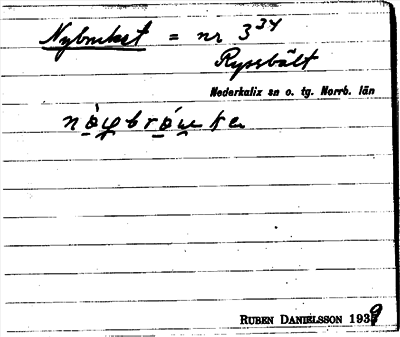 Nybruket = nr 3³⁴
Ryssbält
Nederkalix sn o. tg. Norrb. län
RUBEN DANIELSSON 1939